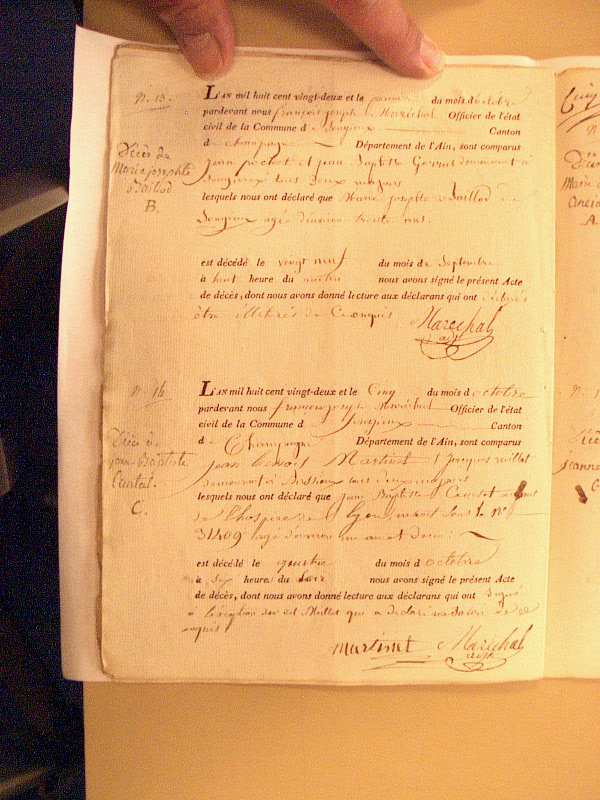 n. 15.
Décès de
Marie josephte
Baillod
B.
L'AN mil huit cent vingt-deux et le premier du mois d'octobre
pardevant nous françois joseph Maréchal Officier de l'état
civil de la Commune de Songieux Canton
de Champagne Département de l'Ain, sont comparus
jean pochet et jean Baptte demeurant à
Songieux tous deux majeurs
lesquels nous ont déclaré que Marie josephte Baillod de
Songieux agée d'environ trente ans.
est décédé le vingt neuf du mois de Septembre
à huit heure du matin nous avons signé le présent Acte
de décès, dont nous avons donné lecture aux déclarans qui ont déclarés
être illitérés de ce enquis Maréchal
adjt
n. 16
Décès de
jean-Baptiste
C.
L'AN mil huit cent vingt-deux et le Cinq du mois d'octobre
pardevant nous françois joseph Maréchal Officier de l'état
civil de la Commune de Songieux Canton
de Champagne Département de l'Ain, sont comparus
jean Benoit Martinet et jacques
demeurant à tous deux majeurs
lesquels nous ont déclaré que jean Baptiste
de l'hospice de Lyon, sous le no
31409 agé d'environ un an et demi
est décédé le quatre du mois d'octobre
à six heure du soir nous avons signé le présent Acte
de décès, dont nous avons donné lecture aux déclarans qui ont signé
à l'exception dudit qui a déclaré ne savoir de ce
enquis
Martinet Maréchal
adjt
Cinq
Marie
A
jeanne